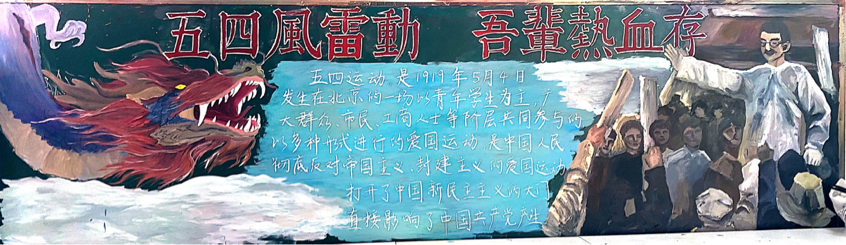 五四風雷動 吾輩熱血存
五四运动是1919年5月4日
发生在北京的一场以青年学生为主,广
大群众、市民、工商人士等阶层共同参与的
以多种形式进行的爱国运动,是中国人民
彻底反对帝国主义、封建主义的爱国运动
打开了中国新民主主义的大门
直接影响了中国共产党产生